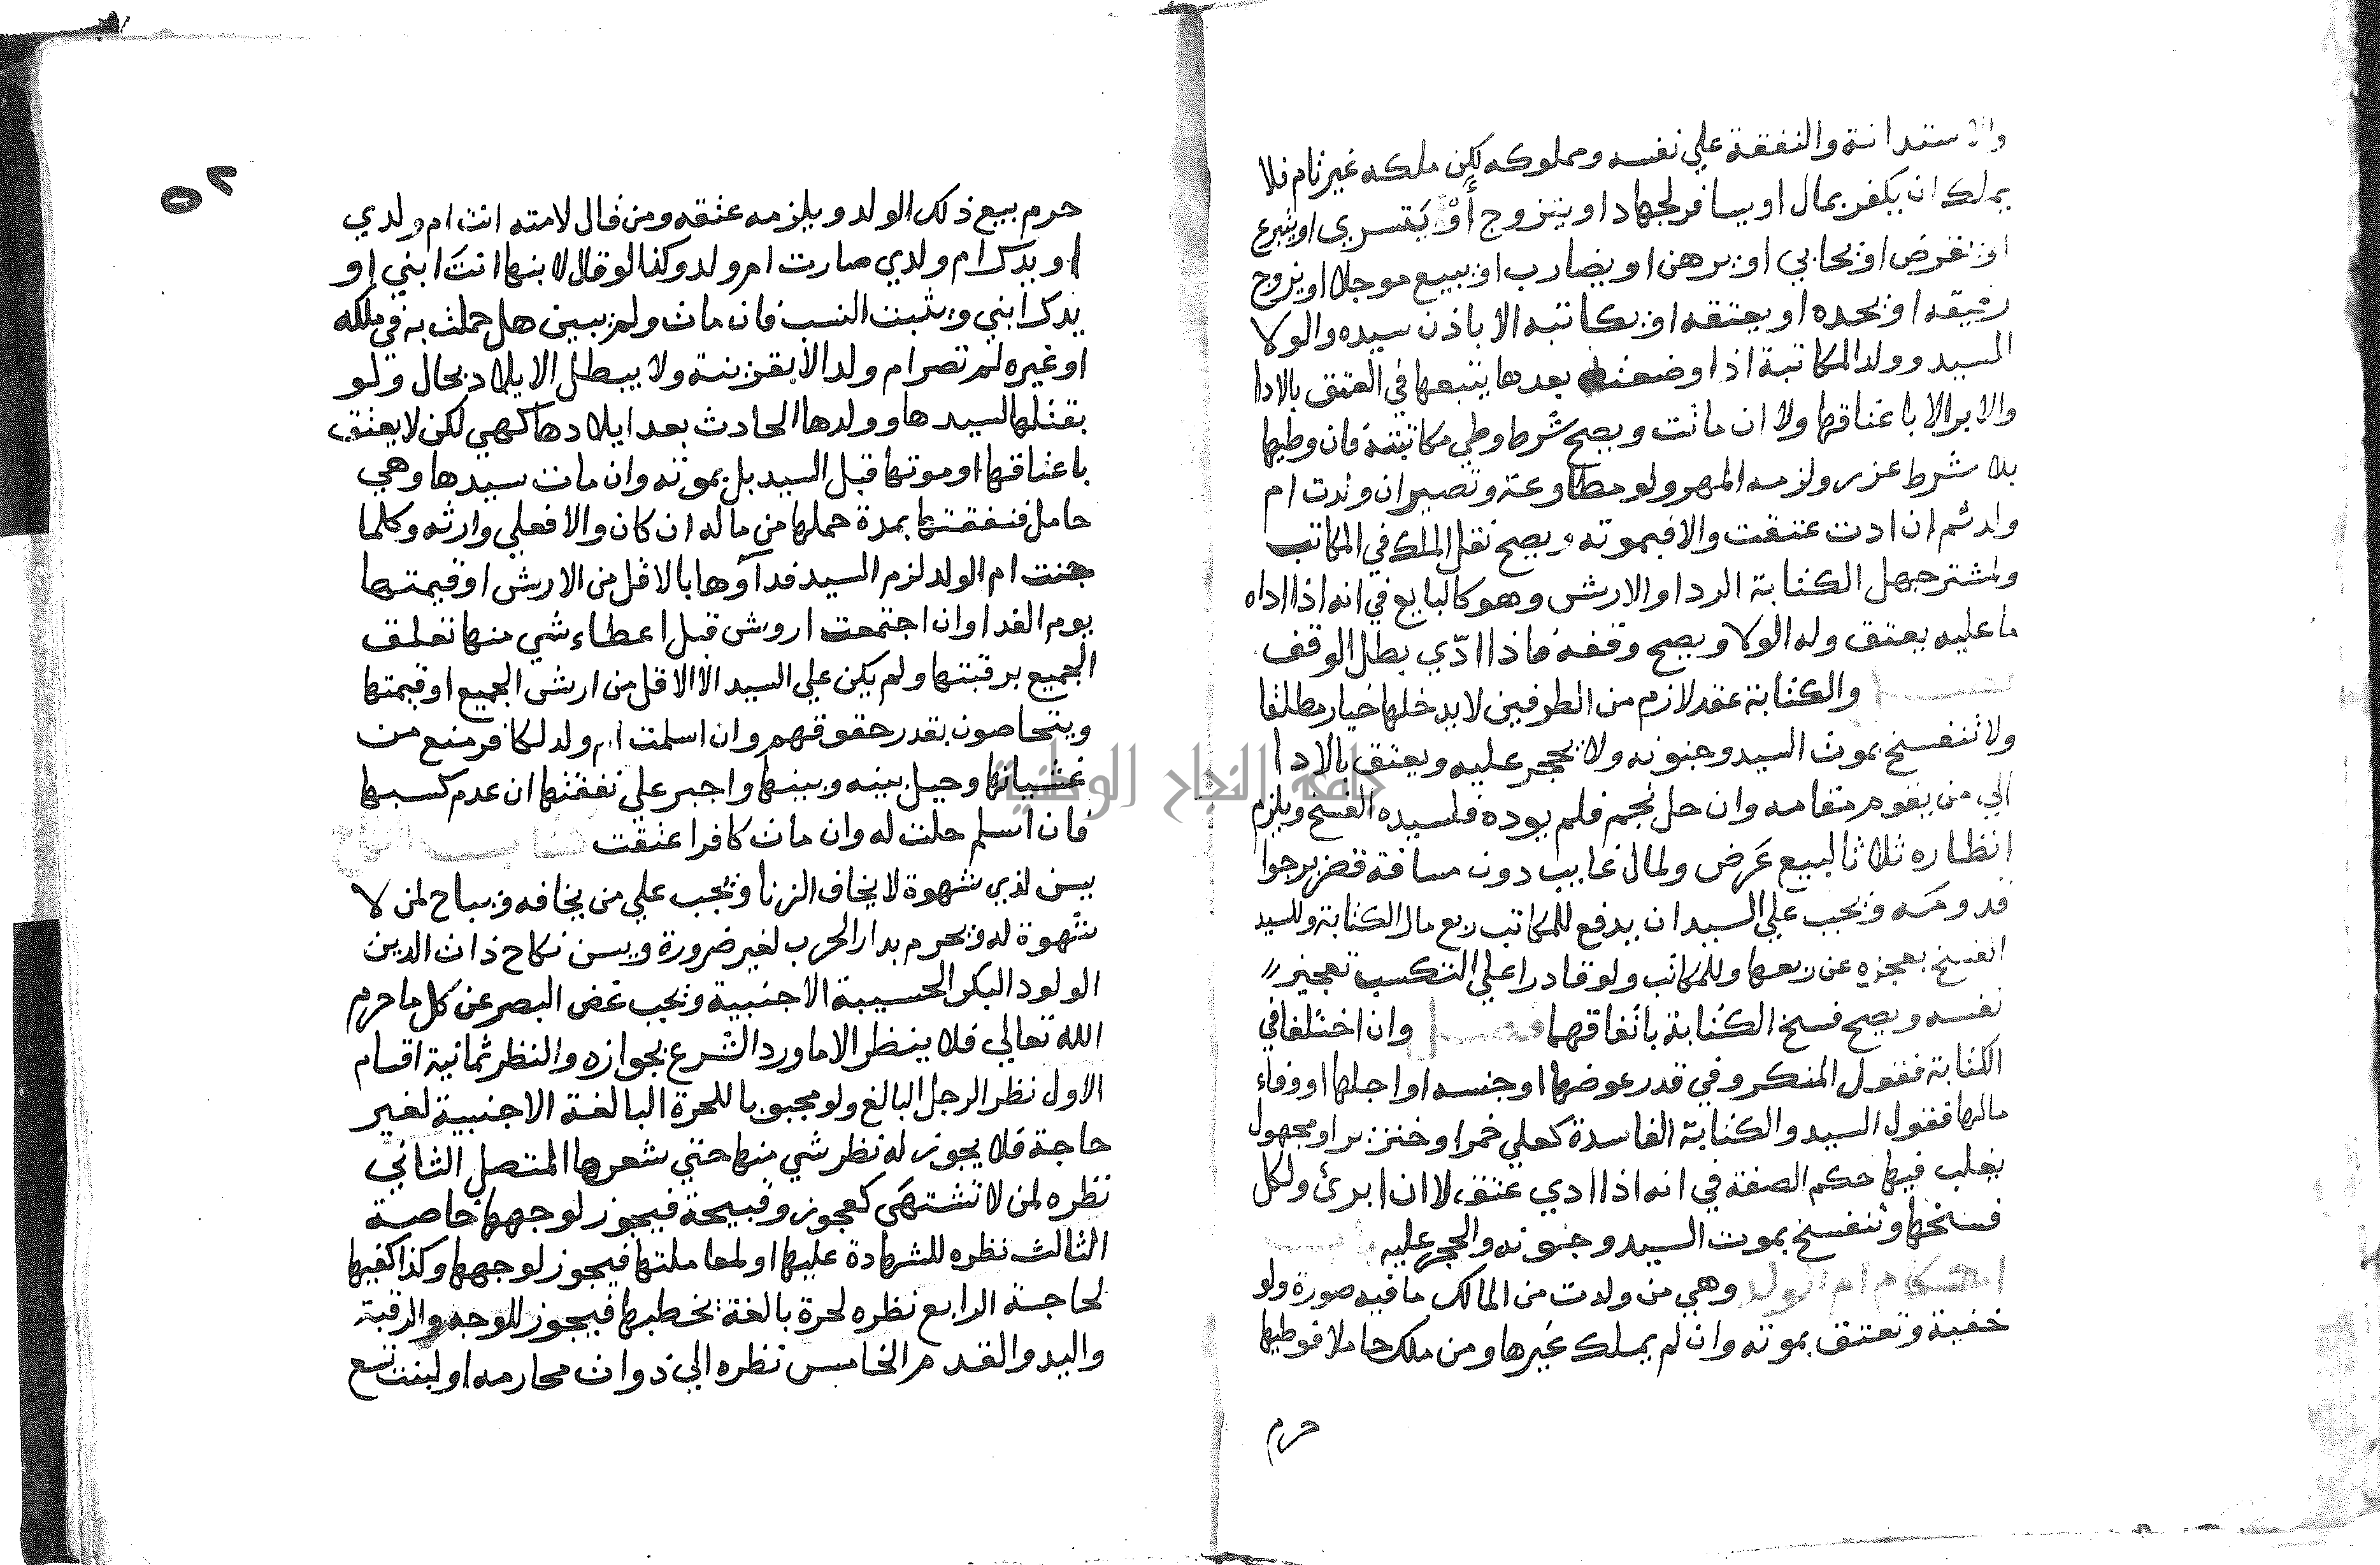 والاستدانة والنفقة علي نفسه ومملوكه لكن ملكه غير تام فلا
يملك ان يكفر بمال او يسافر لجهاد او يتزوج أوْ يَتسري او يتبرع
او يقرض او يحابي او يرهن او يضارب او يبيع موجلا او يزوج
رقيقه او يحده او يعتقه او يكاتبه الا باذن سيده والولا
للسيد وولد المكاتبة اذا وضعته بعدها يتبعها في العتق بالادا
والابرالا باعتاقها ولا ان ماتت ويصح شرط وطي مكاتبته فان وطيها
بلا شرط عزر ولزمه المهر ولو مطاوعة وتصير ان ولدت ام
ولد ثم ان ادت عتقت والا فبموته ويصح نقل الملك في المكاتب
ولمشتر جهل الكتابة الرد او الارش وهو كالبايع في انه اذا اداه
ما عليه يعتق وله الولا ويصح وقفه فاذا ادّي بطل الوقف
فصل والكتابة عقد لازم من الطرفين لا يدخلها خيار مطلقا
ولا تنفسخ بموت السيد وجنونه ولا بحجر عليه ويعتق بالادا
الي من يقوم مقامه وان حل نجم فلم يوده فلسيده الفسخ ويلزم
انظاره ثلاثا لبيع عَرض ولمال غايب دون مسافة قصر يرجوا
قدومَه ويجب علي السيد ان يدفع للمكاتب ربع مال الكتابة وللسيد
الفسخ بعجزه عن ربعها وللمكاتب ولو قادرا علي التكسب تعجيز
نفسه ويصح فسخ الكتابة باتفاقهما فصل وان اختلفا في
الكتابة فقول المنكر وفي قدر عوضها او جنسه او اجلها او وفاء
مالها فقول السيد والكتابة الفاسدة كعلي خمر او خنزير او مجهول
يغلب فيها حكم الصفة في انه اذا ادي عتق لا ان ابرئ ولكل
فسخها وتنفسخ بموت السيد وجنونه والحجر عليه باب
احكام ام الولد وهي من ولدت من المالك ما فيه صورة ولو
خفية وتعتق بموته وان لم يملك غيرها ومن ملك حاملا فوطيها
حرم
٥٢
حرم بيع ذلك الولد ويلزمه عتقه ومن قال لامته انت ام ولدي
او يدك ام ولدي صارت ام ولد وكذا لو قال لابنها انتَ ابني او
يدك ابني ويثبت النسب فان مات ولم يبين هل حملت به في ملكه
او غيره لم تصر ام ولد الا بقرينة ولا يبطل الايلاد بحال ولو
بقتلها لسيدها وولدها الحادث بعد ايلادها كهي لكن لا يعتق
باعتاقها او موتها قبل السيد بل بموته وان مات سيدها وهي
حامل فنفقتها بمدة حملها من ماله ان كان والا فعلي وارثه وكلما
جنت ام الولد لزم السيد فدآؤها بالاقل من الارش او قيمتها
يوم الفدا وان اجتمعت اروش قبل اعطاء شي منها تعلق
الجميع برقبتها ولم يكن علي السيد الا الاقل من ارش الجميع او قيمتها
ويتحاصون بقدر حقوقهم وان اسلمت ام ولد لكافر منع من
غشيانها وحيل بينه وبينها واجبر علي نفقتها ان عدم كسبها
فان اسلم حلت له وان مات كافرا عتقت كتاب النكاح
يسن لذي شهوة لا يخاف الزنا ويجب علي من يخافه ويباح لمن لا
شهوة له ويحرم بدار الحرب لغير ضرورة ويسن نكاح ذات الدين
الولود البكر الحسيبة الاجنبية ويجب غض البصر عن كل ما حرم
الله تعالي فلا ينظر الا ما ورد الشرع بجوازه والنظر ثمانية اقسام
الاول نظر الرجل البالغ ولو مجبوبا للحرة البالغة الاجنبية لغير
حاجة فلا يجوز له نظر شي منها حتي شعرها المتصل الثاني
نظره لمن لا تشتهَي كعجوز وقبيحة فيجوز لوجهها خاصة
الثالث نظره للشهادة عليها او لمعاملتها فيجوز لوجهها وكذا كفيها
لحاجة الرابع نظره لحرة بالغة يخطبها فيجوز للوجه والرقبة
واليد والقدم الخامس نظره الي ذوات محارمه او لبنت تسع
جامعة النجاح الوطنية